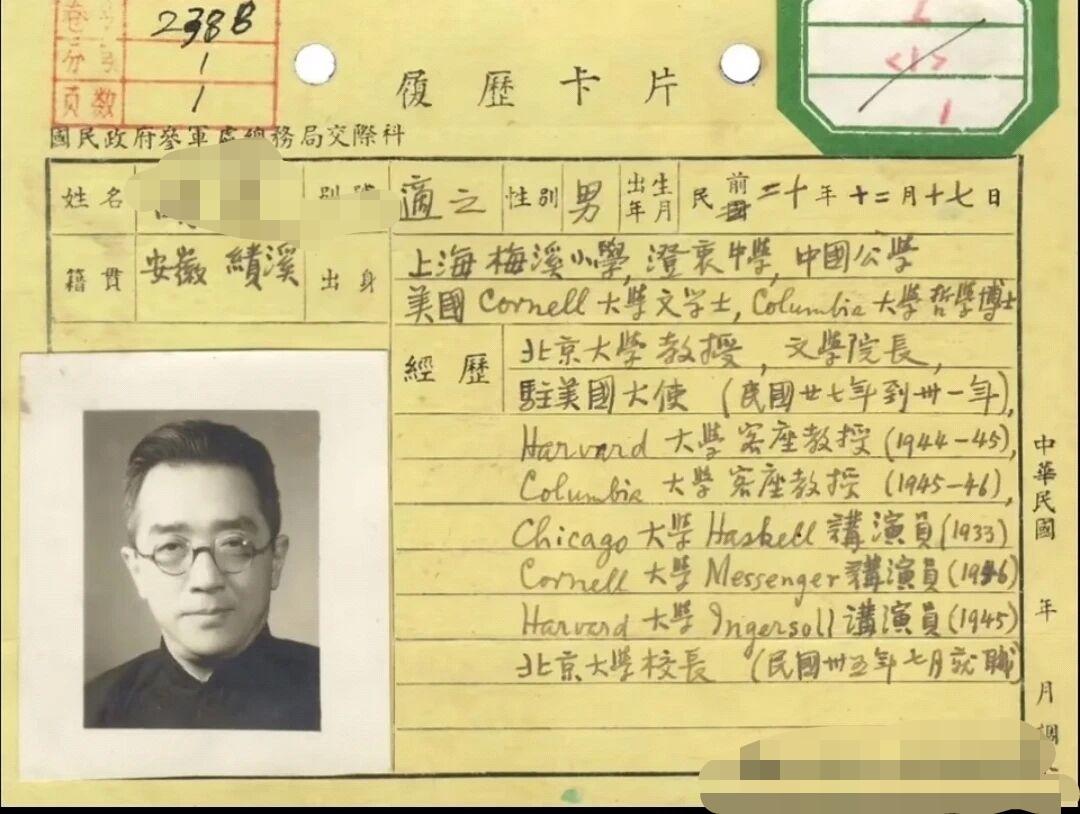 卷号 238B
分号 1
頁数 1
1
<1>
1
履歷卡片
國民政府參軍處總務局交際科
姓名 别號 適之 性别 男 出生年月 民前二十年十二月十七日
籍貫 安徽 績溪 出身 上海梅溪小學, 澄衷中學, 中國公學
美國 Cornell 大學文学士, Columbia 大學哲學博士
經歷 北京大學教授, 文學院長,
駐美國大使 (民國廿七年到卅一年),
Harvard 大學客座教授 (1944-45),
Columbia 大學客座教授 (1945-46),
Chicago 大學 Haskell 講演員 (1933)
Cornell 大學 Messenger 講演員 (1946)
Harvard 大學 Ingersoll 講演員 (1945)
北京大學校長 (民國卅五年七月就職)
中華民國 年 月